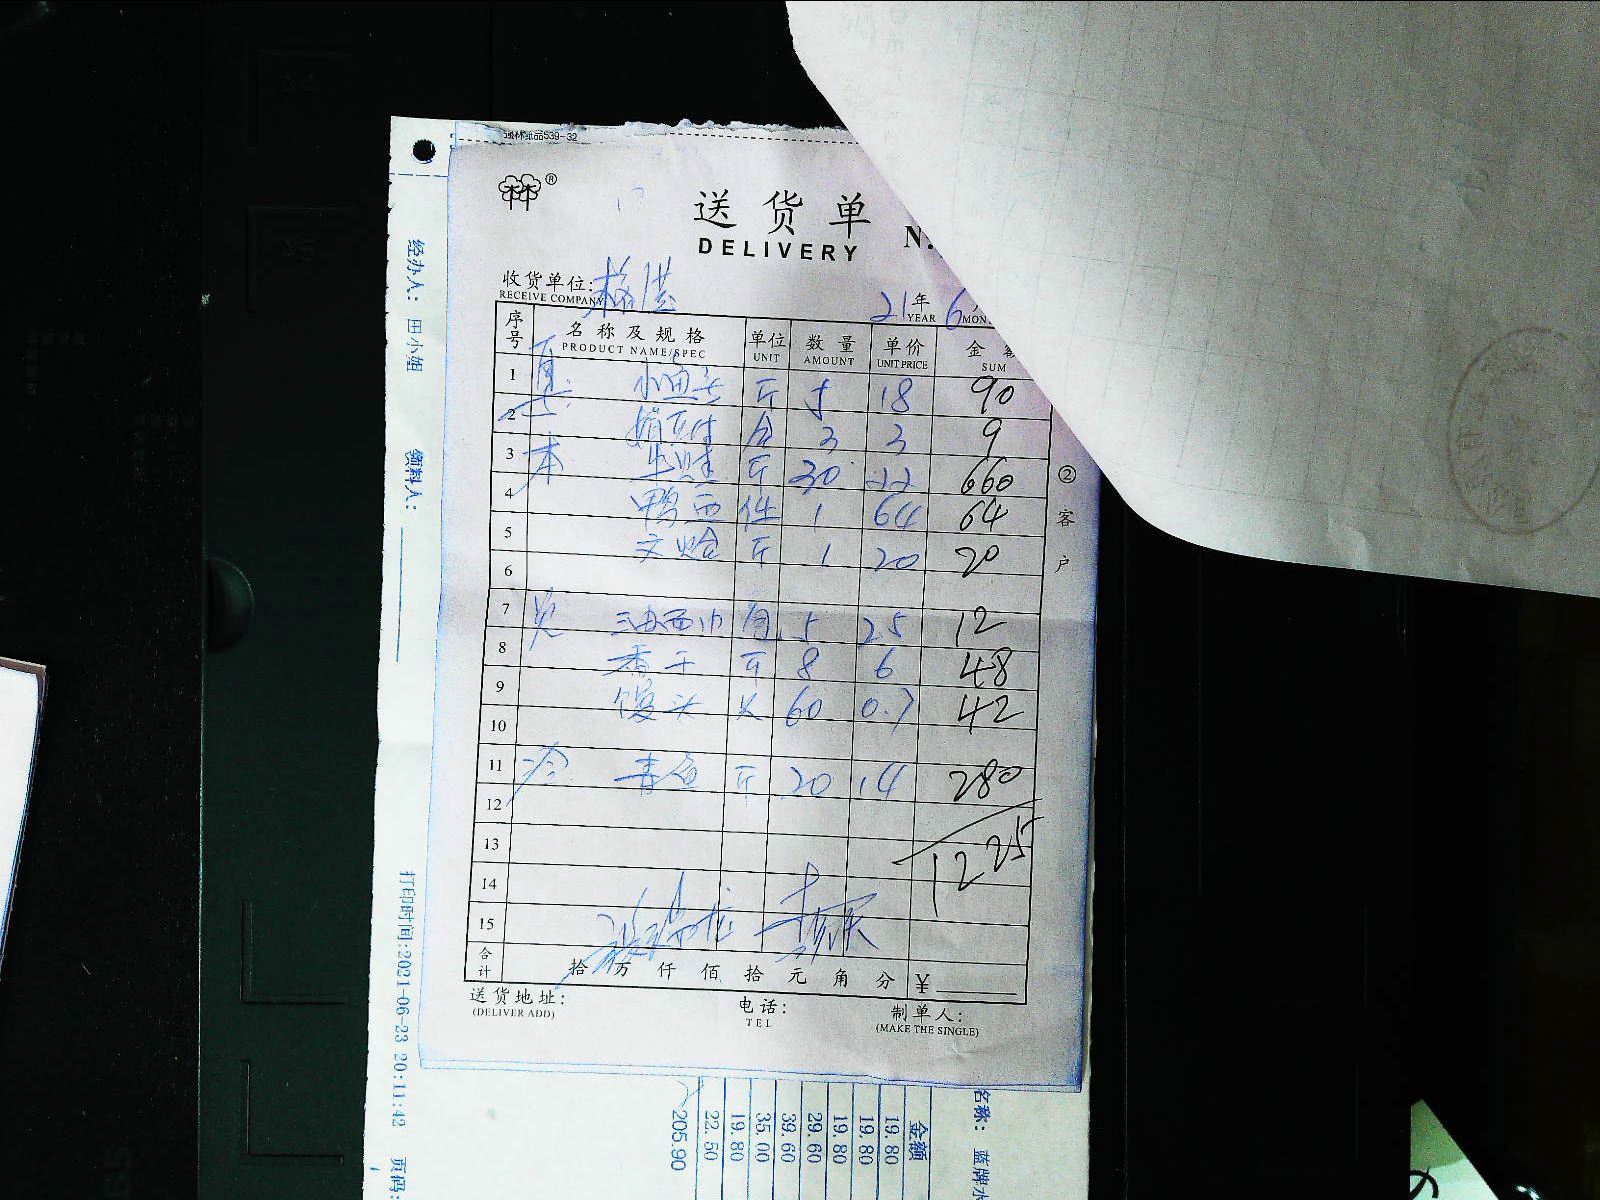 强林纸品539-32
送货单
DELIVERY N.
收货单位: 格洪
RECEIVE COMPANY
21年 6
YEAR MON
序号 名称及规格 单位 数量 单价 金
PRODUCT NAME/SPEC UNIT AMOUNT UNIT PRICE SUM
1 小鱼 斤 5 18 90
2 3 3 9
3 本 牛蛙 斤 30 22 660
4 鸭 件 1 64 64
5 文蛤 斤 1 20 20
6
7 5 2.5 12
8 香干 斤 8 6 48
9 馒头 60 0.7 42
10
11 冷 青鱼 斤 20 14 280
12
13 1225
14
15
合计 拾 万 仟 佰 拾 元 角 分 ¥
送货地址: 电话: 制单人:
(DELIVER ADD) TEL (MAKE THE SINGLE)
②客户
经办人: 田小姐
领料人:
打印时间:2021-06-23 20:11:42 页码:
名称: 蓝牌水
金额
19.80
19.80
19.80
29.60
39.60
35.00
19.80
22.50
205.90